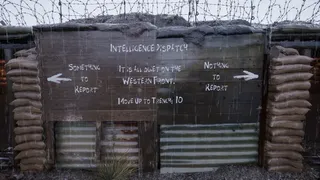 Intelligence Dispatch
Something
to
Report
It is all quiet on the
Western Front,
Move up to Trench 10
Nothing
to
Report